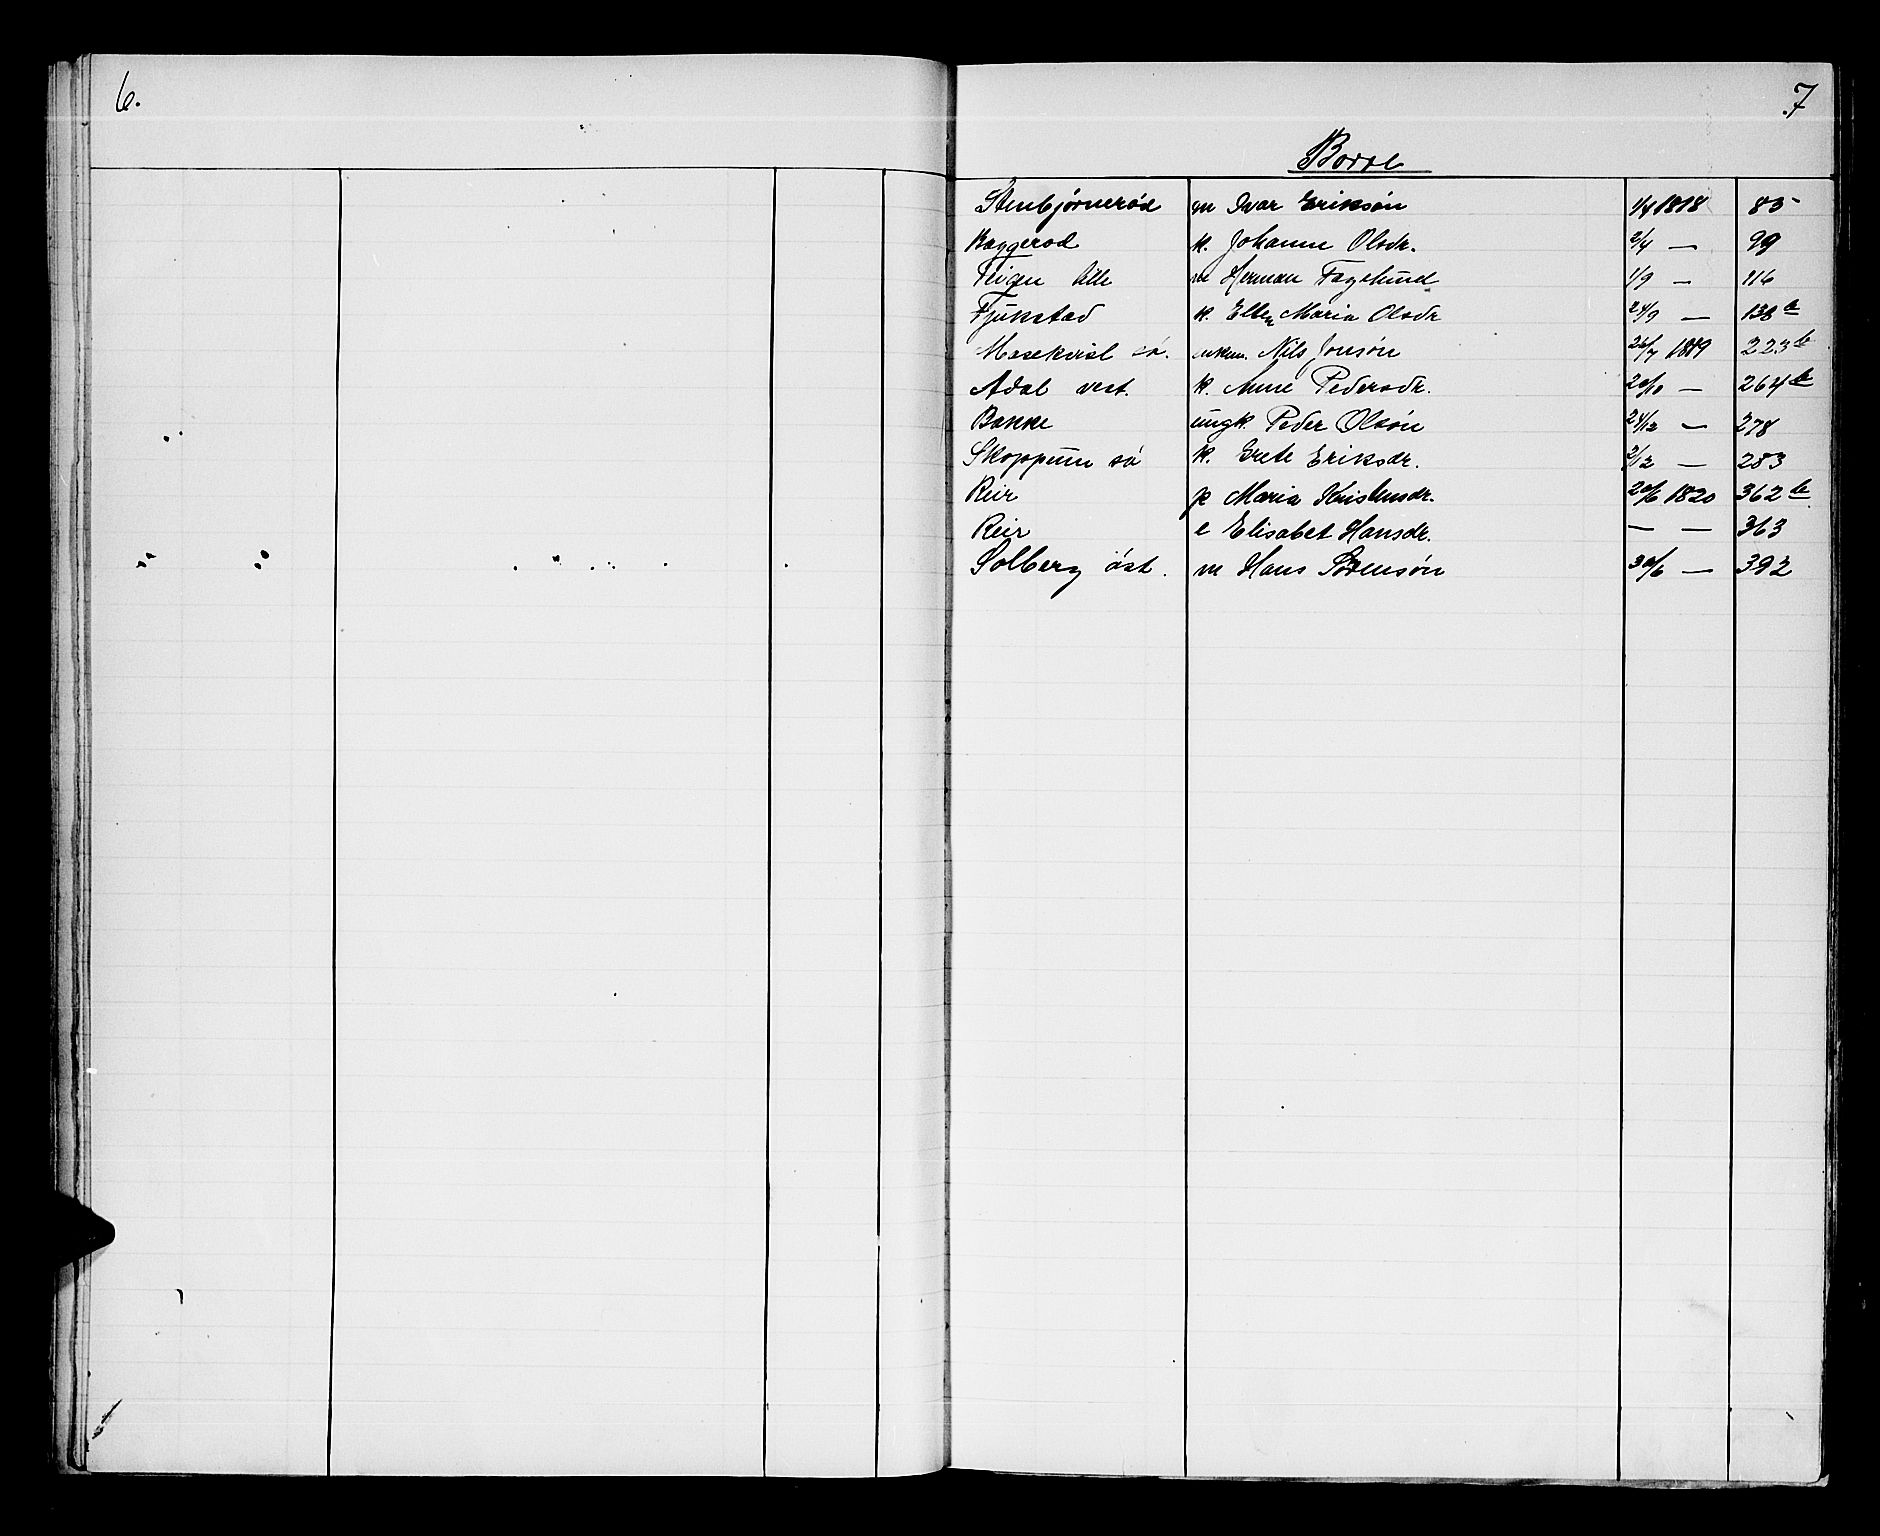 6.
7
Borre
Stenbjørnerød m Ivar Eriksøn 1/4 1818 85
Baggerød k. Johanne Olsdr. 2/4 — 99
Teigen lille m Herman Fagelund 1/9 — 116
Fjukstad k. Ellen Maria Olsdr 24/9 — 138b
Masekvist sø. enkem. Nils Jonsøn 26/7 1819 223b
Adal vest. k. Anne Pedersdr. 20/10 — 264b
Bakke ungk. Peder Olsøn 24/12 — 278
Skoppum sø k. Grete Eriksdr. 2/12 — 283
Reir p Maria Kristensdr. 20/6 1820 362b
Reir e Elisabet Hansdr. — — 363
Solberg øst. m Hans Sørensøn 30/6 — 392